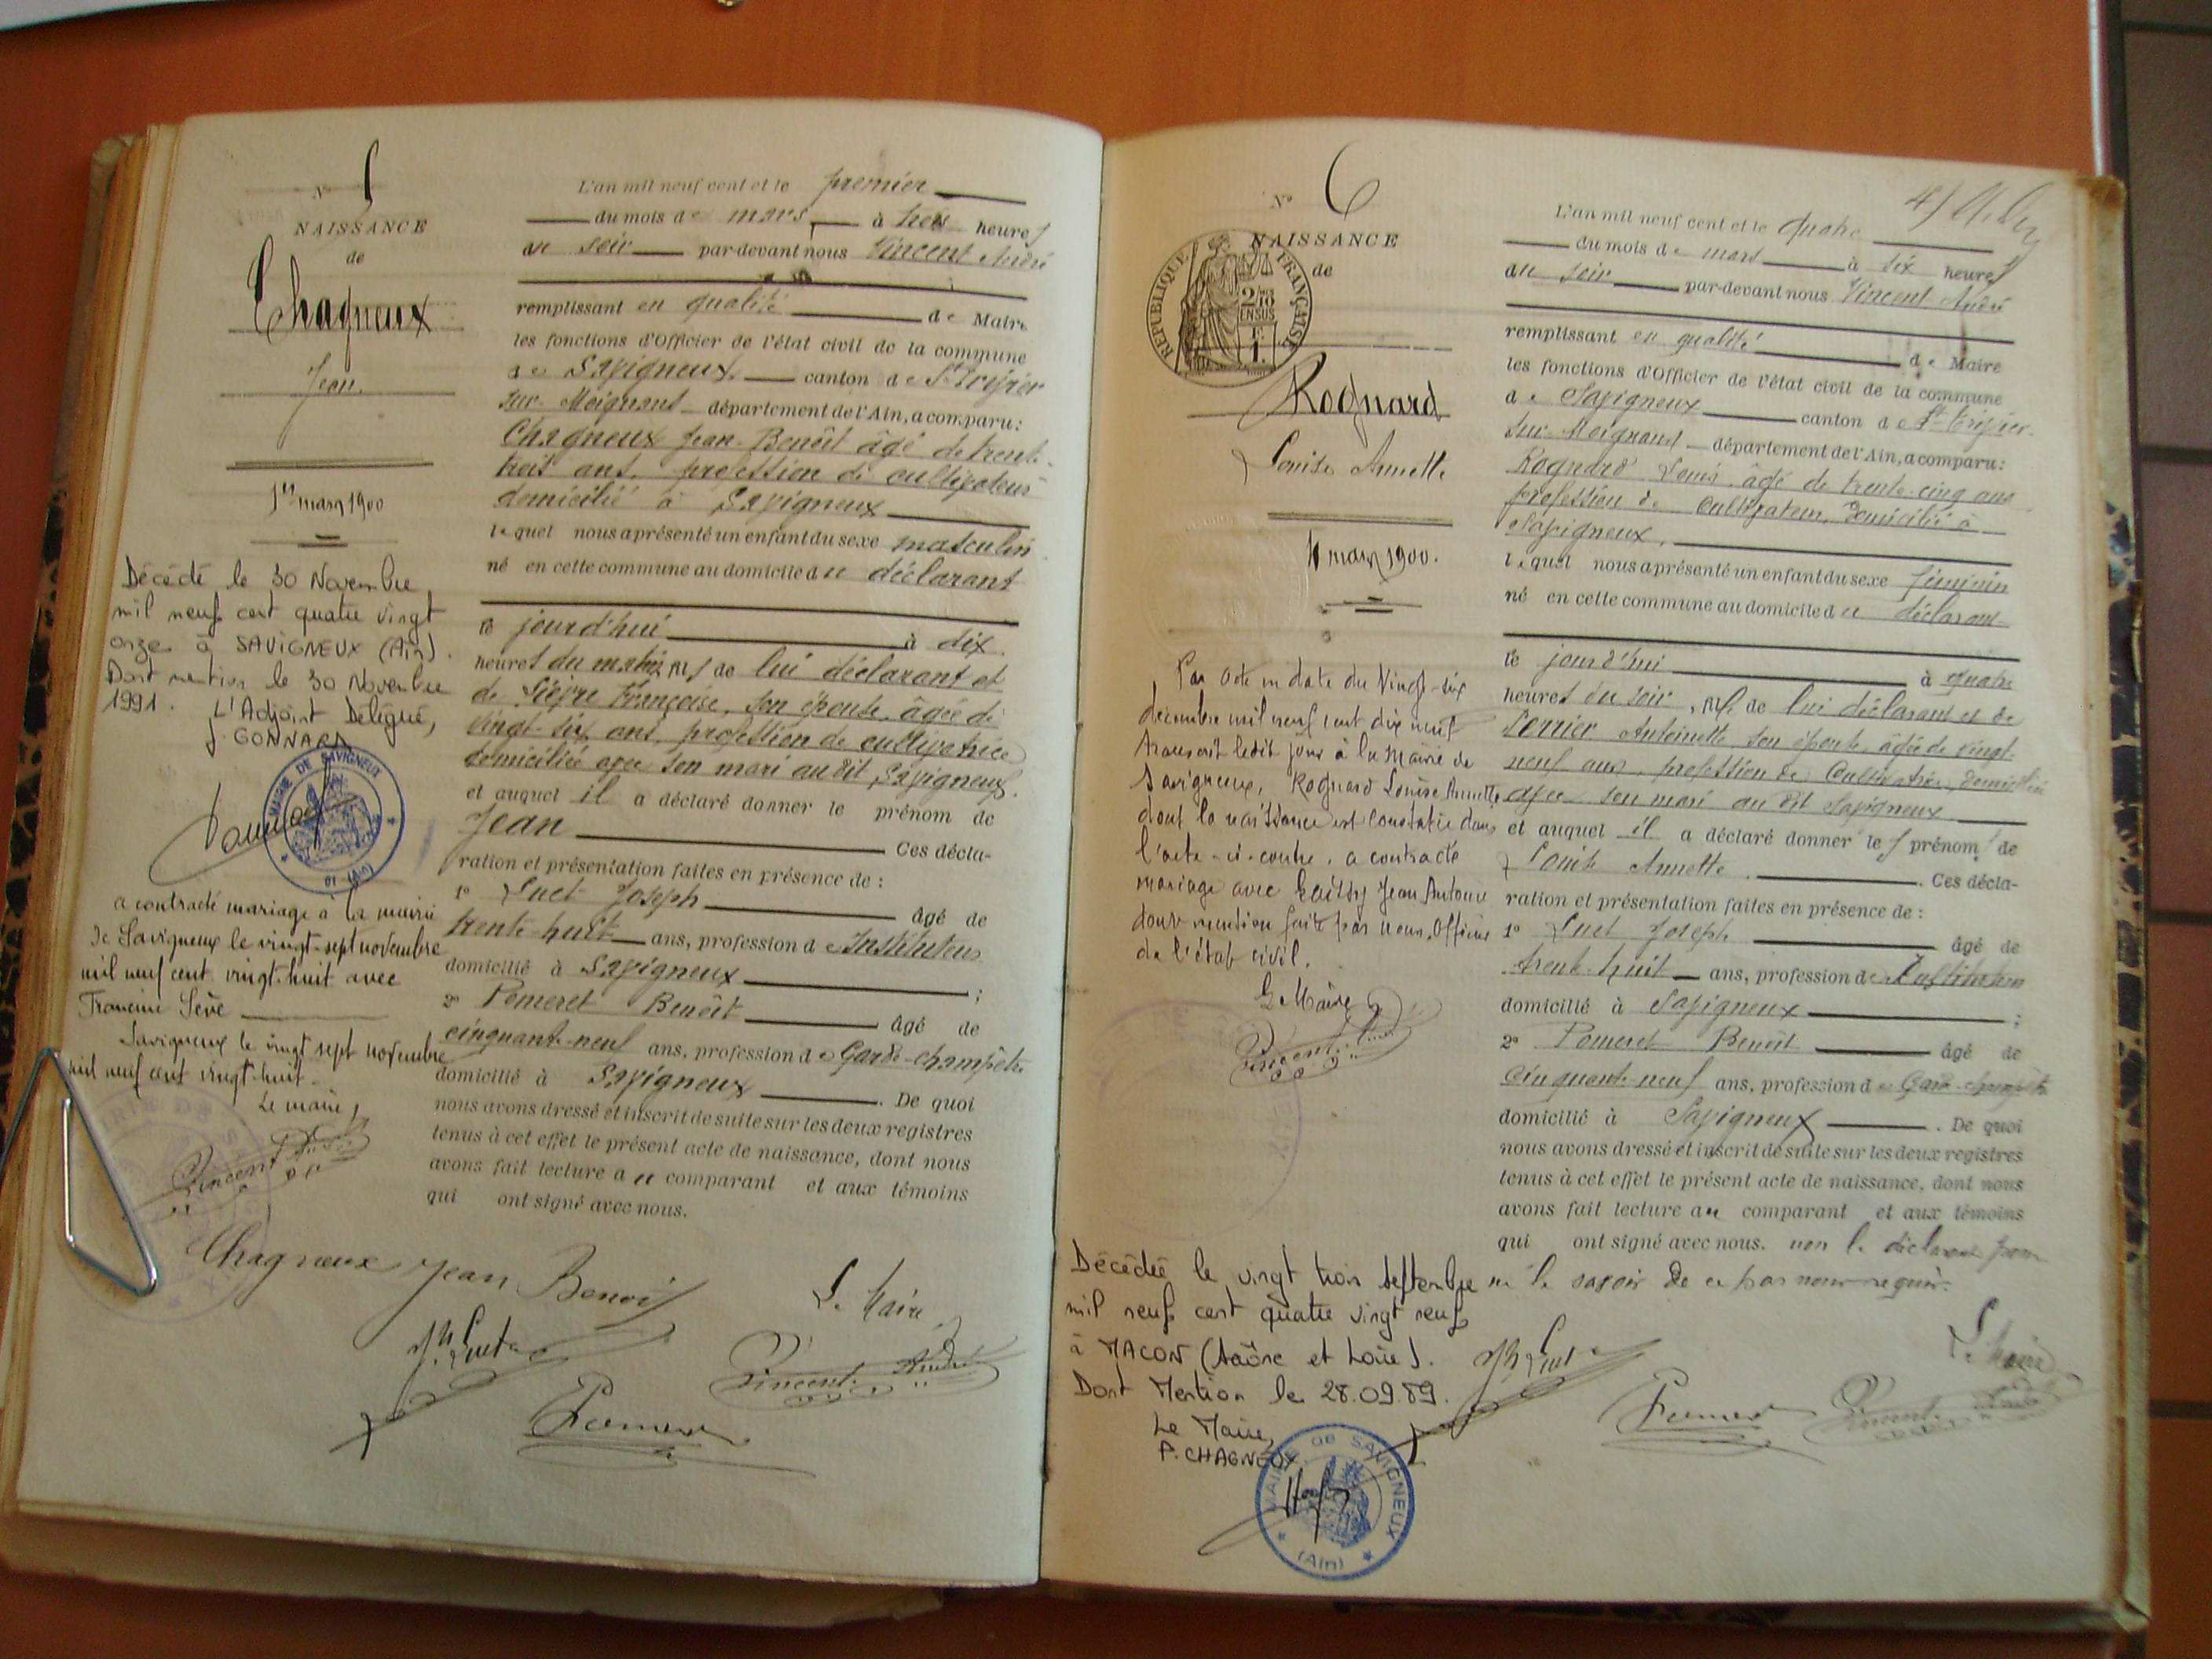 N° 5
NAISSANCE
de
Chagneux
Jean
1er mars 1900
Décédé le 30 Novembre
mil neuf cent quatre vingt
onze à SAVIGNEUX (Ain).
Dont mention le 30 Novembre
1991. L'Adjoint Délégué,
J. GONNARD
MAIRIE DE SAVIGNEUX
01 (Ain)
a contracté mariage à la mairie
de Savigneux le vingt-sept novembre
mil neuf cent vingt-huit avec
Francine Sève
Savigneux le vingt sept novembre
mil neuf cent vingt-huit
Le maire,
Vincent André
L'an mil neuf cent et le premier
du mois de mars à trois heures
du soir par-devant nous Vincent André
remplissant en qualité de Maire
les fonctions d'Officier de l'état civil de la commune
de Savigneux canton de St Trivier
sur Moignans département de l'Ain, a comparu:
Chagneux Jean-Benoît âgé de trente-
trois ans, profession de cultivateur
domicilié à Savigneux
lequel nous a présenté un enfant du sexe masculin
né en cette commune au domicile du déclarant
le jourd'hui à dix
heures du matin, de lui déclarant et
de Françoise, son épouse, âgée de
vingt-six ans, profession de cultivatrice
domiciliée avec son mari au dit Savigneux.
et auquel il a déclaré donner le prénom de
Jean Ces décla-
ration et présentation faites en présence de :
1° Luct Joseph âgé de
trente-huit ans, profession d'Instituteur
domicilié à Savigneux ;
2° Pomeret Benoît âgé de
cinquante-neuf ans, profession de Garde-champêtre
domicilié à Savigneux . De quoi
nous avons dressé et inscrit de suite sur les deux registres
tenus à cet effet le présent acte de naissance, dont nous
avons fait lecture au comparant et aux témoins
qui ont signé avec nous.
Chagneux Jean Benoit
Le Maire,
Vincent André
N° 6
NAISSANCE
de
REPUBLIQUE FRANÇAISE
2/10 EN SUS
F. 1.
Rognard
Louise Annette
4 mars 1900.
Par acte en date du Vingt-six
décembre mil neuf cent dix neuf
transcrit ledit jour à la Mairie de
Savigneux, Rognard Louise Annette
dont la naissance est constatée dans
l'acte-ci-contre, a contracté
mariage avec Jean Antoine
dont mention faite par nous, Officier
de l'état civil.
Le Maire
Vincent André
Décédée le vingt trois septembre
mil neuf cent quatre vingt neuf
à MACON (Saône et Loire).
Dont Mention le 28.09.89.
Le Maire,
P. CHAGNEUX
MAIRIE DE SAVIGNEUX
(Ain)
L'an mil neuf cent et le quatre
du mois de mars à six heures
du soir par-devant nous Vincent André
remplissant en qualité de Maire
les fonctions d'Officier de l'état civil de la commune
de Savigneux canton de St Trivier
sur Moignans département de l'Ain, a comparu:
Rognard Louis, âgé de trente-cinq ans
profession de Cultivateur, domicilié à
Savigneux,
lequel nous a présenté un enfant du sexe féminin
né en cette commune au domicile du déclarant
le jourd'hui à quatre
heures du soir, de lui déclarant et de
Antoinette son épouse, âgée de vingt-
neuf ans, profession de Cultivatrice, domiciliée
avec son mari au dit Savigneux
et auquel il a déclaré donner les prénoms de
Louise Annette . Ces décla-
ration et présentation faites en présence de :
1° Luct Joseph âgé de
trente-huit ans, profession d'Instituteur
domicilié à Savigneux ;
2° Pomeret Benoît âgé de
Cinquante-neuf ans, profession de Garde-champêtre
domicilié à Savigneux . De quoi
nous avons dressé et inscrit de suite sur les deux registres
tenus à cet effet le présent acte de naissance, dont nous
avons fait lecture au comparant et aux témoins
qui ont signé avec nous. non le déclarant pour
ne le savoir de ce par nous requis.
Le Maire
Vincent André